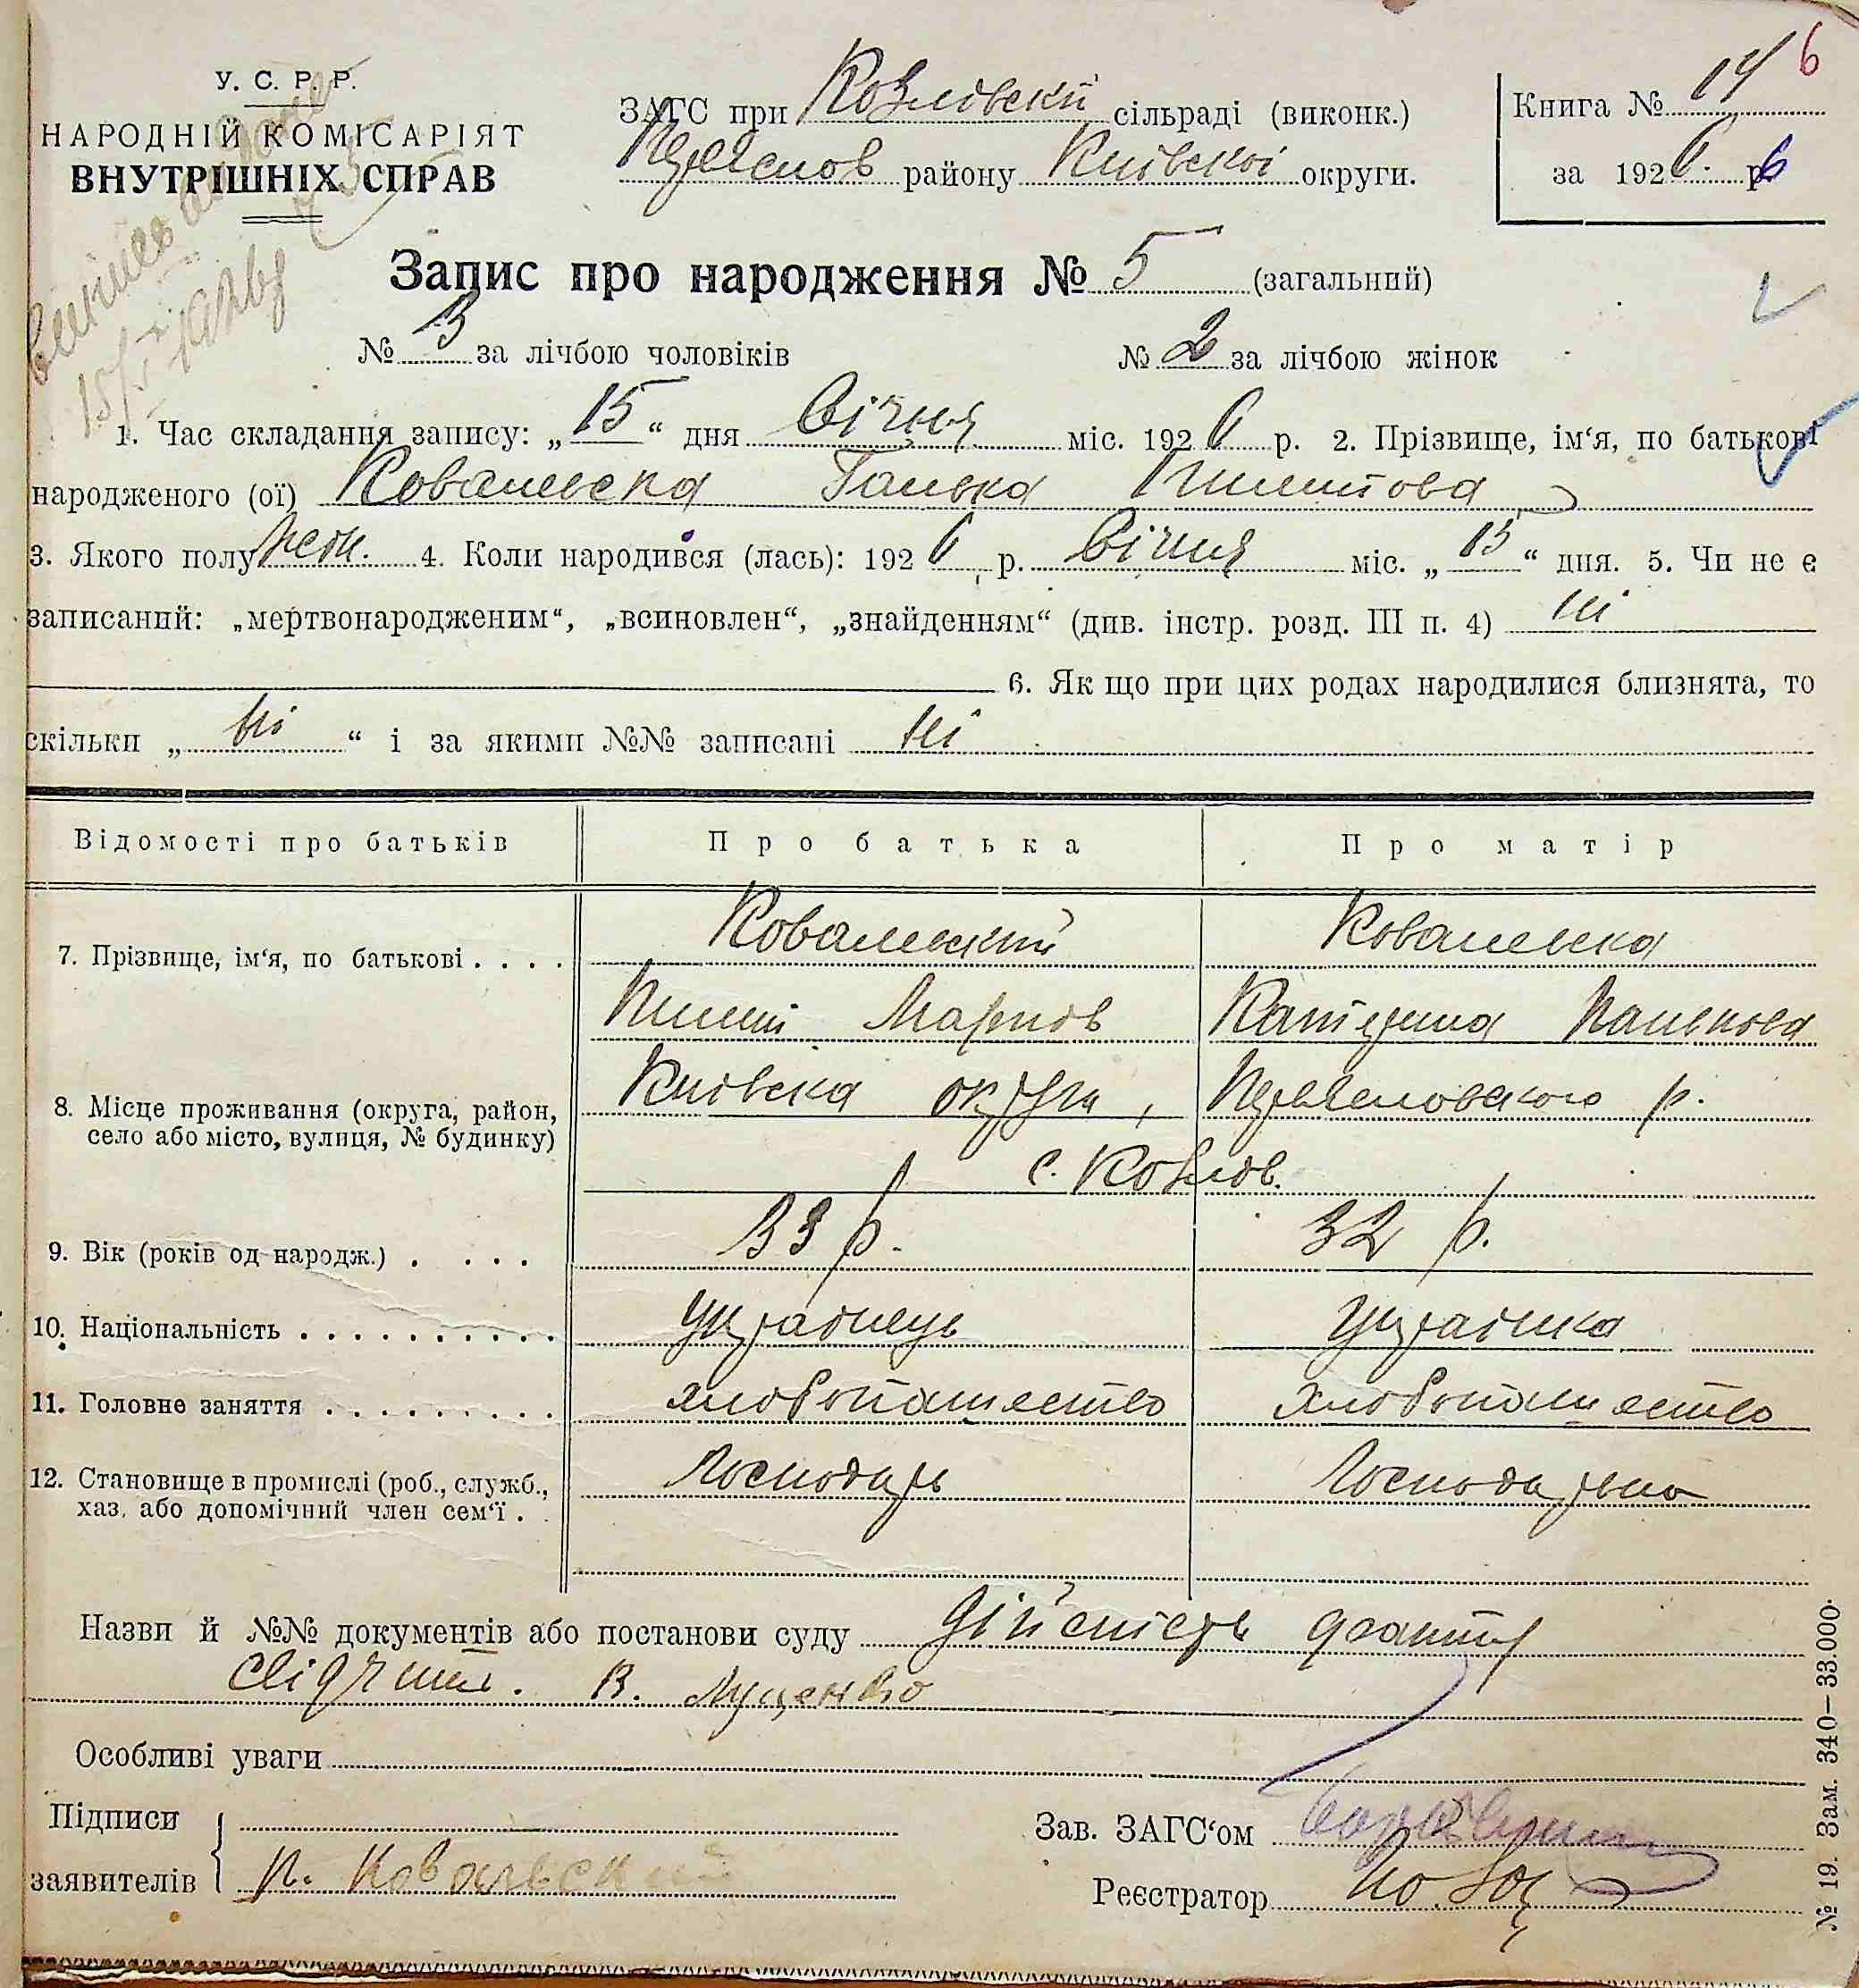 У. С. Р. Р.
НАРОДНІЙ КОМІСАРІЯТ
ВНУТРІШНІХ СПРАВ
ЗАГС при Козлівскій сільраді (виконк.)
району Київскоі округи.
Книга № 14 6
за 1926 р. 6
Запис про народження № 5 (загальний)
№ 3 за лічбою чоловіків № 2 за лічбою жінок
15/I 1926
1. Час складання запису: „15“ дня Січня міс. 1926 р. 2. Прізвище, ім‘я, по батькові
народженого (ої) Ковалевска Ганька
3. Якого полу жен. 4. Коли народився (лась): 1926 р. Січня міс. „13“ дня. 5. Чи не є
записаний: „мертвонародженим“, „всиновлен“, „знайденням“ (див. інстр. розд. III п. 4) ні
6. Як що при цих родах народилися близнята, то
скільки „ні“ і за якими №№ записані ні
Відомості про батьків Про батька Про матір
7. Прізвище, ім‘я, по батькові . . . . Ковалевский Ковалевска
Марків Катерина Панькова
8. Місце проживання (округа, район,
село або місто, вулиця, № будинку)
Київска округи, р.
с. Козлов.
9. Вік (років од народж.) . . . . . 33 р. 32 р.
10. Національність . . . . . . . . . . Українець Українка
11. Головне заняття . . . . . . . . . хліборопашество хліборопашество
12. Становище в промислі (роб., служб.,
хаз. або допомічний член сем‘ї . .
Господарь Господарька
Назви й №№ документів або постанови суду Дійсність факту
свідчит. В. Луценко
Особливі уваги
Підписи
заявителів К. Ковальский
Зав. ЗАГС‘ом
Реєстратор
№ 19. Зам. 340—33.000.